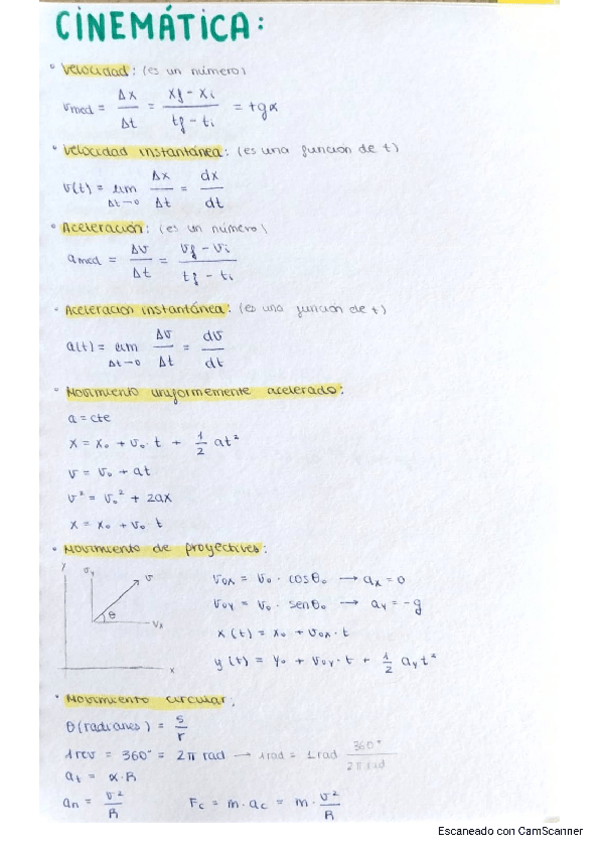 CINEMÁTICA:
• Velocidad: (es un número)
vmed = Δx/Δt = (xf - xi)/(tf - ti) = tgα
• Velocidad instantánea: (es una función de t)
v(t) = lim Δt→0 Δx/Δt = dx/dt
• Aceleración: (es un número)
amed = Δv/Δt = (vf - vi)/(tf - ti)
• Aceleración instantánea: (es una función de t)
a(t) = lim Δt→0 Δv/Δt = dv/dt
• Movimiento uniformemente acelerado:
a = cte
x = x₀ + v₀ · t + 1/2 at²
v = v₀ + at
v² = v₀² + 2ax
x = x₀ + v₀ t
• Movimiento de proyectives:
y vy v θ vx x
v0x = v₀ · cosθ₀ → ax = 0
v0y = v₀ · senθ₀ → ay = -g
x(t) = x₀ + v0x · t
y(t) = y₀ + v0y · t + 1/2 ay t²
• Movimiento circular:
θ(radianes) = s/r
1rev = 360° = 2π rad → 1rad = 1rad 360°/2π rad
at = α·R
an = v²/R Fc = m · ac = m · v²/R
Escaneado con CamScanner